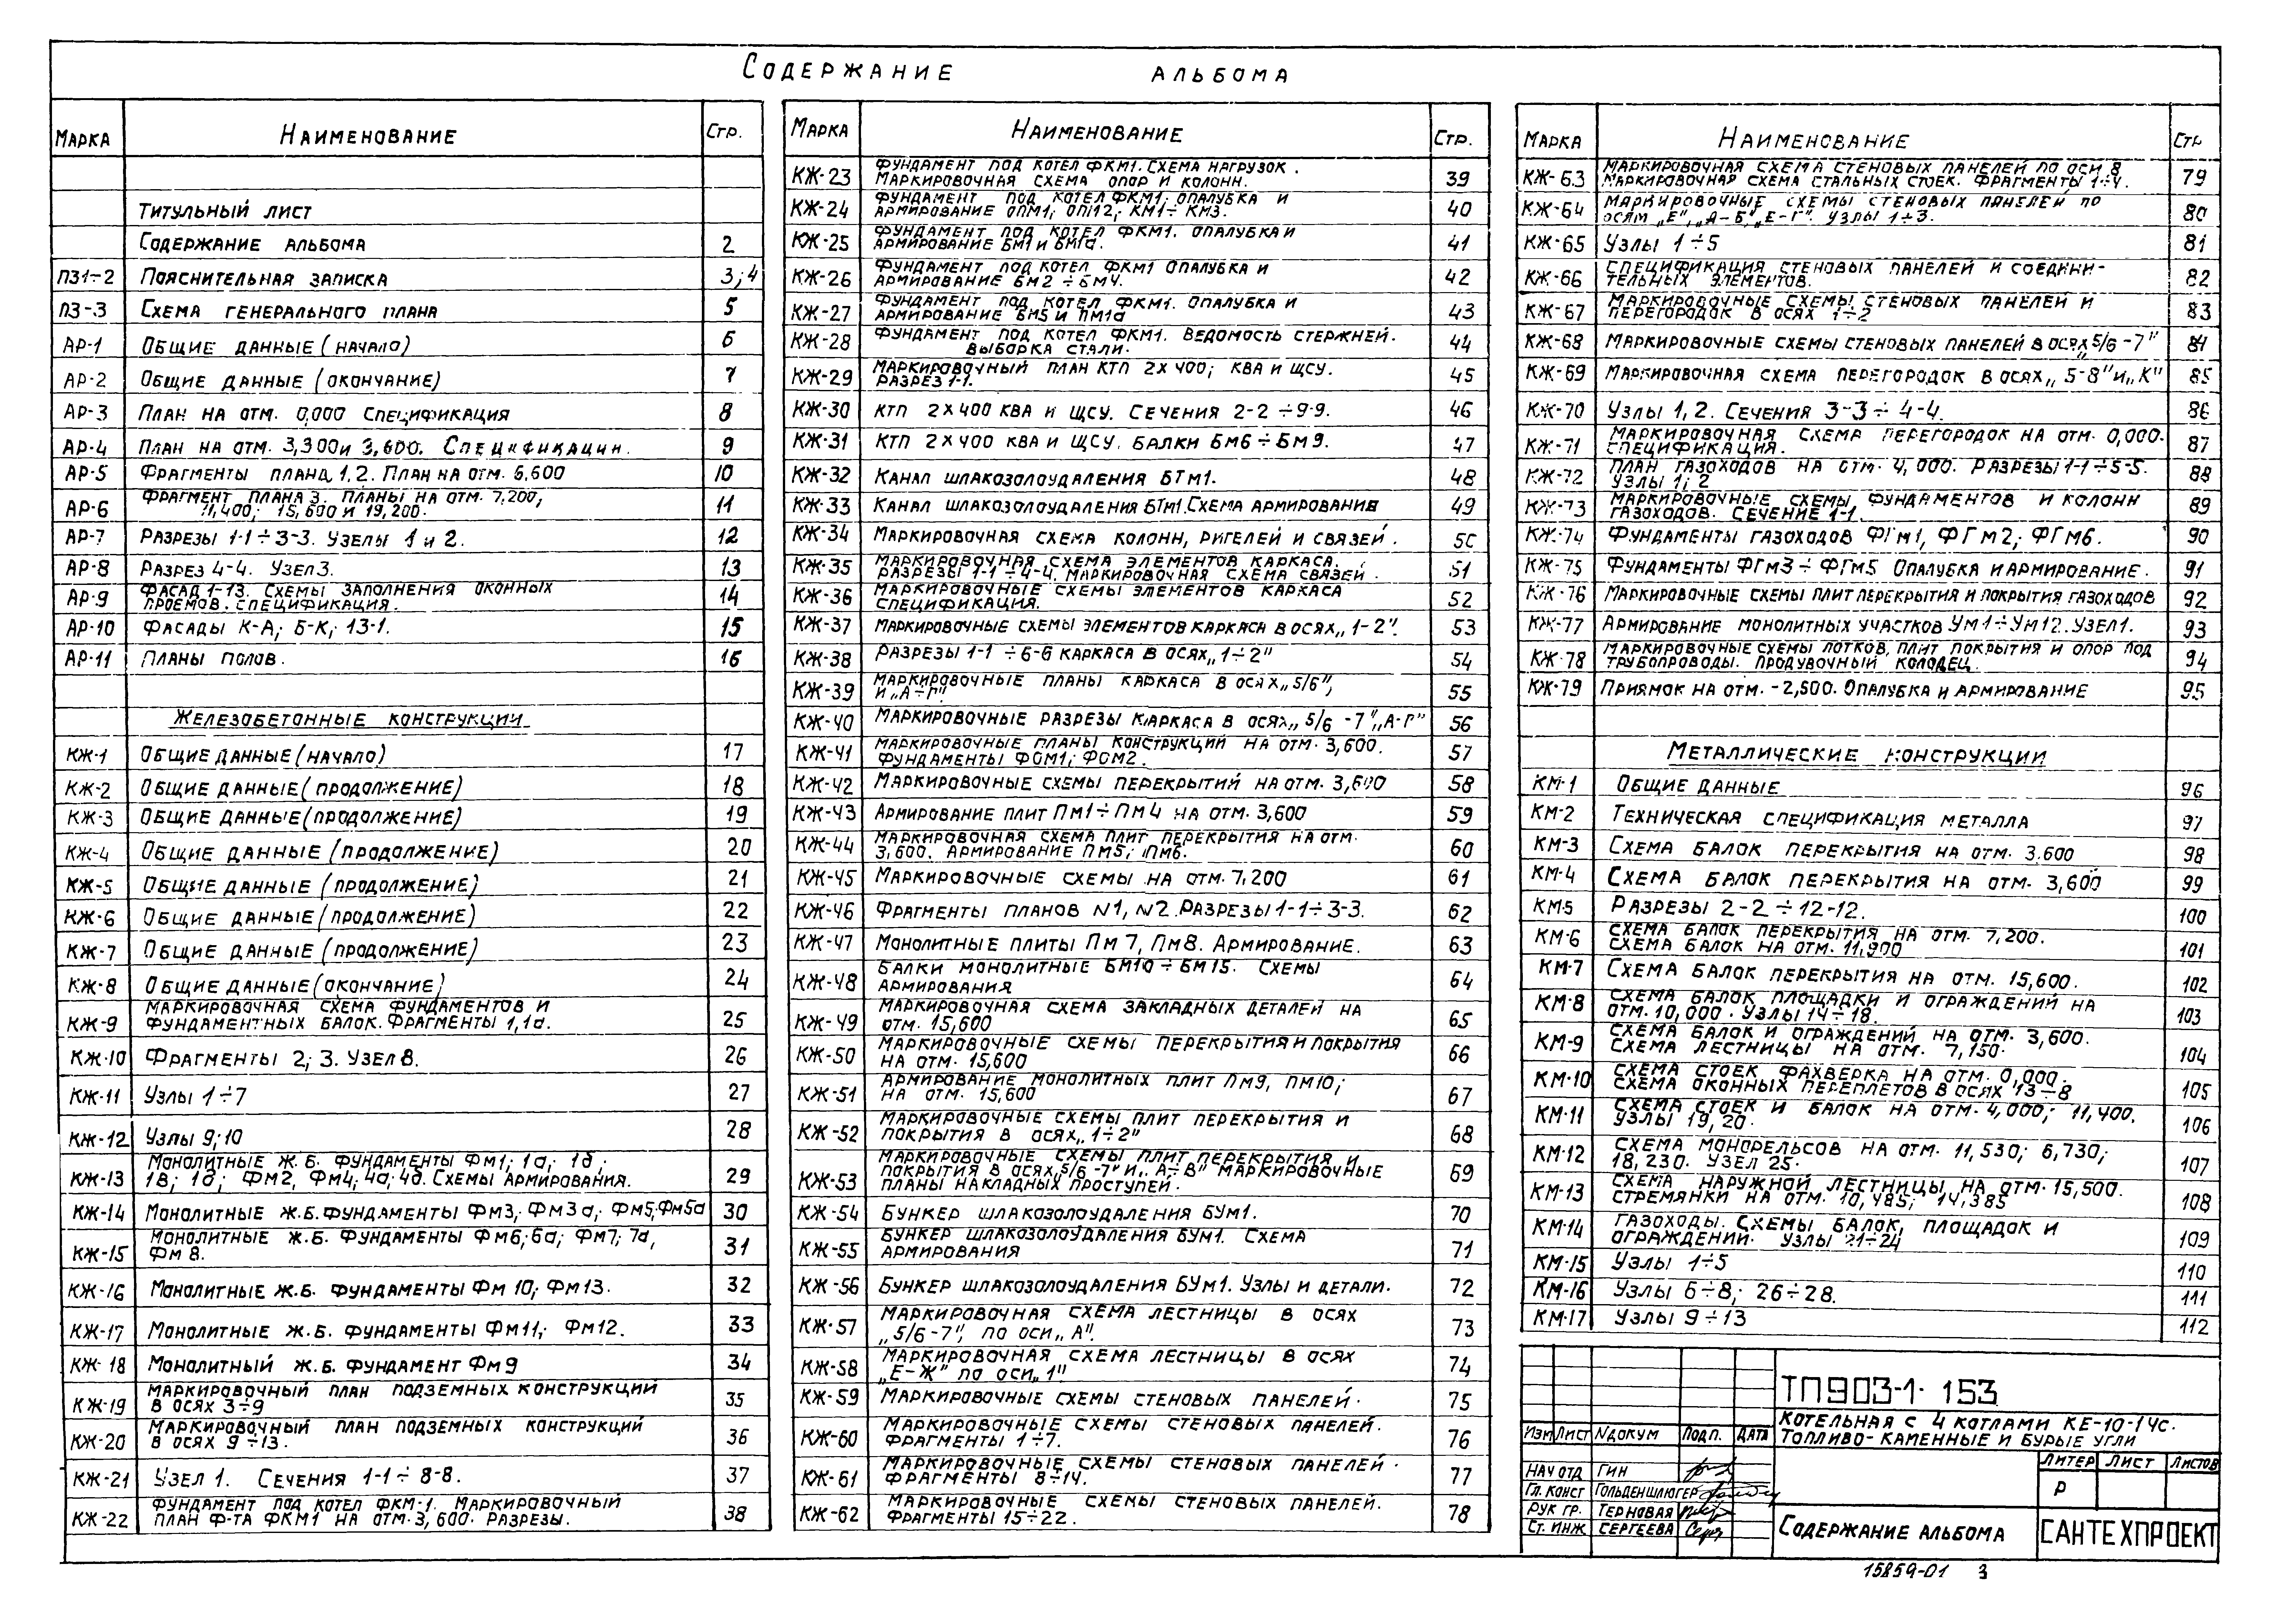 Содержание альбома
Марка Наименование Стр.
Титульный лист
Содержание альбома 2
ПЗ1÷2 Пояснительная записка 3; 4
ПЗ-3 Схема генерального плана 5
АР-1 Общие данные (начало) 6
АР-2 Общие данные (окончание) 7
АР-3 План на отм. 0,000 спецификация 8
АР-4 План на отм. 3,300 и 3,600. Спецификации. 9
АР-5 Фрагменты плана 1, 2. План на отм. 6,600 10
АР-6 Фрагмент плана 3. Планы на отм. 7,200;
11,400; 15,600 и 19,200. 11
АР-7 Разрезы 1-1÷3-3. Узлы 1 и 2. 12
АР-8 Разрез 4-4. Узел 3. 13
АР-9 Фасад 1-13. Схемы заполнения оконных
проемов. Спецификация. 14
АР-10 Фасады К-А; Б-К; 13-1. 15
АР-11 Планы полов. 16
Железобетонные конструкции
КЖ-1 Общие данные (начало) 17
КЖ-2 Общие данные (продолжение) 18
КЖ-3 Общие данные (продолжение) 19
КЖ-4 Общие данные (продолжение) 20
КЖ-5 Общие данные (продолжение) 21
КЖ-6 Общие данные (продолжение) 22
КЖ-7 Общие данные (продолжение) 23
КЖ-8 Общие данные (окончание) 24
КЖ-9 Маркировочная схема фундаментов и
фундаментных балок. Фрагменты 1, 1а. 25
КЖ-10 Фрагменты 2; 3. Узел 8. 26
КЖ-11 Узлы 1÷7 27
КЖ-12 Узлы 9; 10 28
КЖ-13 Монолитные ж.б. фундаменты Фм1; 1а; 1б;
1в; 1д; Фм2, Фм4; 4а; 4б. Схемы армирования. 29
КЖ-14 Монолитные ж.б. фундаменты Фм3; Фм3а; Фм5; Фм5а 30
КЖ-15 Монолитные ж.б. фундаменты Фм6; 6а; Фм7; 7а,
Фм8. 31
КЖ-16 Монолитные ж.б. фундаменты Фм10; Фм13. 32
КЖ-17 Монолитные ж.б. фундаменты Фм11; Фм12. 33
КЖ-18 Монолитный ж.б. фундамент Фм9 34
КЖ-19 Маркировочный план подземных конструкций
в осях 3÷9 35
КЖ-20 Маркировочный план подземных конструкций
в осях 9÷13. 36
КЖ-21 Узел 1. Сечения 1-1÷8-8. 37
КЖ-22 Фундамент под котел ФКМ-1. Маркировочный
план ф-та ФКМ1 на отм. 3,600. Разрезы. 38
Марка Наименование Стр.
КЖ-23 Фундамент под котел ФКМ1. Схема нагрузок.
Маркировочная схема опор и колонн. 39
КЖ-24 Фундамент под котел ФКМ1. Опалубка и
армирование ОПМ1; ОПМ2; КМ1÷КМ3. 40
КЖ-25 Фундамент под котел ФКМ1. Опалубка и
армирование БМ1 и БМ1а. 41
КЖ-26 Фундамент под котел ФКМ1 опалубка и
армирование БМ2÷БМ4. 42
КЖ-27 Фундамент под котел ФКМ1. Опалубка и
армирование БМ5 и ПМ1а 43
КЖ-28 Фундамент под котел ФКМ1. Ведомость стержней.
Выборка стали. 44
КЖ-29 Маркировочный план КТП 2х400; КВА и ЩСУ.
Разрез 1-1. 45
КЖ-30 КТП 2х400 КВА и ЩСУ. Сечения 2-2÷9-9. 46
КЖ-31 КТП 2х400 КВА и ЩСУ. Балки Бм6÷Бм9. 47
КЖ-32 Канал шлакозолоудаления БТм1. 48
КЖ-33 Канал шлакозолоудаления БТм1. Схема армирования 49
КЖ-34 Маркировочная схема колонн, ригелей и связей. 50
КЖ-35 Маркировочная схема элементов каркаса.
Разрезы 1-1÷4-4. Маркировочная схема связей. 51
КЖ-36 Маркировочные схемы элементов каркаса
спецификация. 52
КЖ-37 Маркировочные схемы элементов каркаса в осях „1-2". 53
КЖ-38 Разрезы 1-1÷6-6 каркаса в осях „1÷2" 54
КЖ-39 Маркировочные планы каркаса в осях „5/6",
и „А÷Г" 55
КЖ-40 Маркировочные разрезы каркаса в осях „5/6-7", „А-Г" 56
КЖ-41 Маркировочные планы конструкций на отм. 3,600.
Фундаменты ФОМ1; ФОМ2. 57
КЖ-42 Маркировочные схемы перекрытий на отм. 3,600 58
КЖ-43 Армирование плит Пм1÷Пм4 на отм. 3,600 59
КЖ-44 Маркировочная схема плит перекрытия на отм.
3,600. Армирование Пм5; Пм6. 60
КЖ-45 Маркировочные схемы на отм. 7,200 61
КЖ-46 Фрагменты планов N1, N2. Разрезы 1-1÷3-3. 62
КЖ-47 Монолитные плиты Пм7, Пм8. Армирование. 63
КЖ-48 Балки монолитные БМ10÷БМ15. Схемы
армирования 64
КЖ-49 Маркировочная схема закладных деталей на
отм. 15,600 65
КЖ-50 Маркировочные схемы перекрытия и покрытия
на отм. 15,600 66
КЖ-51 Армирование монолитных плит Пм9, Пм10;
на отм. 15,600 67
КЖ-52 Маркировочные схемы плит перекрытия и
покрытия в осях „1÷2" 68
КЖ-53 Маркировочные схемы плит перекрытия и
покрытия в осях „5/6-7" и „А÷В" маркировочные
планы накладных проступей. 69
КЖ-54 Бункер шлакозолоудаления БУм1. 70
КЖ-55 Бункер шлакозолоудаления БУм1. Схема
армирования 71
КЖ-56 Бункер шлакозолоудаления БУм1. Узлы и детали. 72
КЖ-57 Маркировочная схема лестницы в осях
„5/6-7", по оси „А". 73
КЖ-58 Маркировочная схема лестницы в осях
„Е-Ж" по оси „1" 74
КЖ-59 Маркировочные схемы стеновых панелей. 75
КЖ-60 Маркировочные схемы стеновых панелей.
Фрагменты 1÷7. 76
КЖ-61 Маркировочные схемы стеновых панелей.
Фрагменты 8÷14. 77
КЖ-62 Маркировочные схемы стеновых панелей.
Фрагменты 15÷22. 78
Марка Наименование Стр
КЖ-63 Маркировочная схема стеновых панелей по оси 8
Маркировочная схема стальных стоек. Фрагменты 1÷4. 79
КЖ-64 Маркировочные схемы стеновых панелей по
осям „Е", „А-Б", „Е-Г". Узлы 1÷3. 80
КЖ-65 Узлы 1÷5 81
КЖ-66 Спецификация стеновых панелей и соедини-
тельных элементов. 82
КЖ-67 Маркировочные схемы стеновых панелей и
перегородок в осях 1÷2 83
КЖ-68 Маркировочные схемы стеновых панелей в осях „5/6-7" 84
КЖ-69 Маркировочная схема перегородок в осях „5-8" и „К" 85
КЖ-70 Узлы 1, 2. Сечения 3-3÷4-4. 86
КЖ-71 Маркировочная схема перегородок на отм. 0,000.
Спецификация. 87
КЖ-72 План газоходов на отм. 4,000. Разрезы 1-1÷5-5.
Узлы 1; 2 88
КЖ-73 Маркировочные схемы фундаментов и колонн
газоходов. Сечение 1-1. 89
КЖ-74 Фундаменты газоходов ФГм1, ФГм2; ФГм6. 90
КЖ-75 Фундаменты ФГм3÷ФГм5 Опалубка и армирование. 91
КЖ-76 Маркировочные схемы плит перекрытия и покрытия газоходов 92
КЖ-77 Армирование монолитных участков Ум1÷Ум12. Узел 1. 93
КЖ-78 Маркировочные схемы лотков, плит покрытия и опор под
трубопроводы. Продувочный колодец. 94
КЖ-79 Приямок на отм. -2,500. Опалубка и армирование 95
Металлические конструкции
КМ-1 Общие данные 96
КМ-2 Техническая спецификация металла 97
КМ-3 Схема балок перекрытия на отм. 3.600 98
КМ-4 Схема балок перекрытия на отм. 3,600 99
КМ-5 Разрезы 2-2÷12-12. 100
КМ-6 Схема балок перекрытия на отм. 7,200.
Схема балок на отм. 11,900 101
КМ-7 Схема балок перекрытия на отм. 15,600. 102
КМ-8 Схема балок площадки и ограждений на
отм. 10,000. Узлы 14÷18. 103
КМ-9 Схема балок и ограждений на отм. 3,600.
Схема лестницы на отм. 7,150. 104
КМ-10 Схема стоек фахверка на отм. 0,000.
Схема оконных переплетов в осях 13÷8 105
КМ-11 Схема стоек и балок на отм. 4,000; 11,400.
Узлы 19, 20. 106
КМ-12 Схема монорельсов на отм. 11,530; 6,730;
18,230. Узел 25. 107
КМ-13 Схема наружной лестницы на отм. 15,500.
Стремянки на отм. 10,485; 14,385 108
КМ-14 Газоходы. Схемы балок, площадок и
ограждений. Узлы 21÷24 109
КМ-15 Узлы 1÷5 110
КМ-16 Узлы 6÷8; 26÷28. 111
КМ-17 Узлы 9÷13 112
ТП903-1-153
Котельная с 4 котлами КЕ-10-14с.
Топливо-каменные и бурые угли
Изм Лист N докум Подп. Дата
Литер Лист Листов
Р
Нач отд Гин
Гл. конст Гольденшлюгер
Рук гр. Терновая
Ст. инж Сергеева
Содержание альбома
САНТЕХПРОЕКТ
15859-01 3